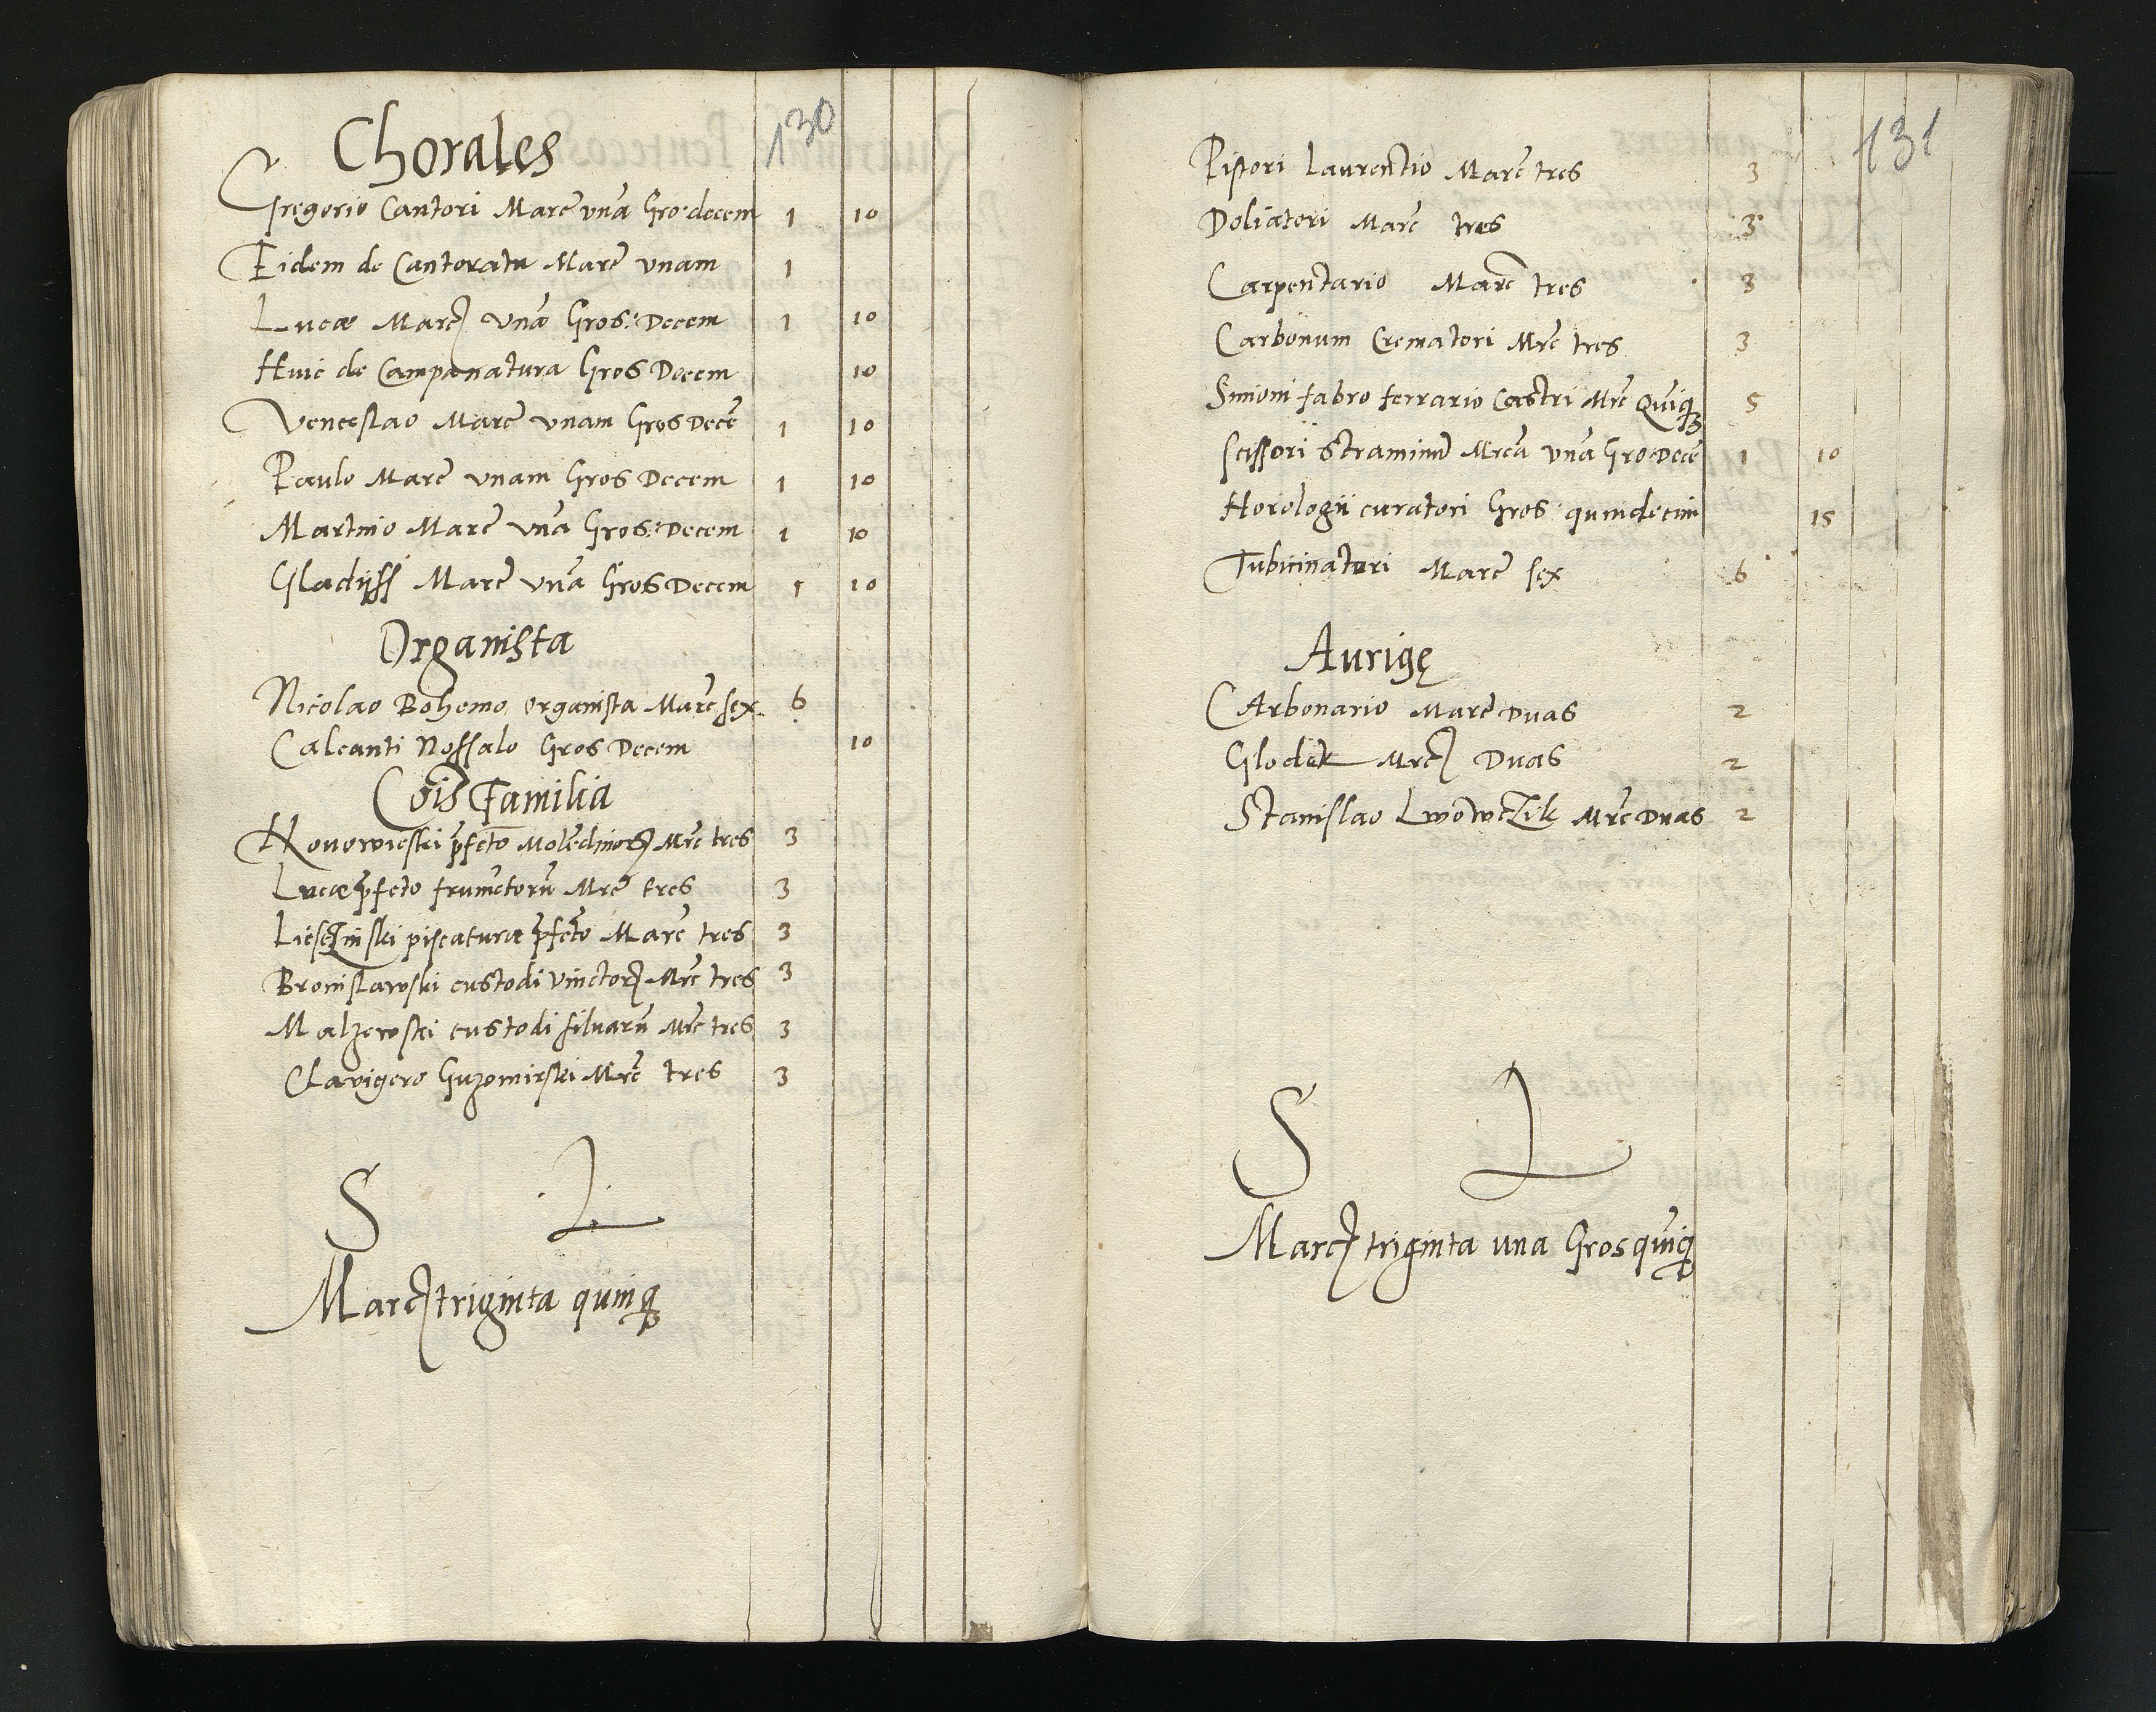 130
Chorales
Gregorio Cantori Marc̃ vnã Gro: decem 1 10
Eidem de Cantoratu Marc̃ vnam 1
Lucæ Marcꝝ vnã Gros: Decem 1 10
Huic de Campanatura Gros Decem 10
Venceslao Marc̃ vnam Gros Decẽ 1 10
Paulo Marc̃ vnam Gros Decem 1 10
Martino Marc̃ vnã Gros: Decem 1 10
Gladijss Marc̃ vnã Gros Decem 1 10
Organista
Nicolao Bohemo organista Marc̃ sex 6
Calcanti Nossalo Gros Decem 10
Cõis Familia
Nouowieski p̃fecto Molẽdinorꝝ Mrc̃ tres 3
Lucæ p̃fcto frumẽtorũ Mrc̃ tres 3
piscaturæ p̃fc̃to Marc̃ tres 3
Bronislawski custodi vinctorꝝ Mrc̃ tres 3
Malzewski custodi siluarũ Mrc̃ tres 3
Clavigero Guzomirski Mrc̃ tres 3
S L
Marcꝝ triginta quinqꝫ
131
Pistori Laurentio Marc̃ tres 3
Doliatori Marc̃ tres 3
Carpentario Marc̃ tres 3
Carbonum Crematori Mrc̃ tres 3
Simoni fabro ferrario Castri Mrc̃ Quĩqꝫ 5
scissori straminũ Mrcã vnã Gro: Decẽ 1 10
Horologii curatori Gros quindecim 15
Tubicinatori Marc̃ sex 6
Aurigę
CArbonario Marc̃ Duas 2
Glodek Mrcꝝ Duas 2
Stanislao LwowcZik Mrc̃ Duas 2
S L
Marcꝝ triginta una Gros quĩqꝫ